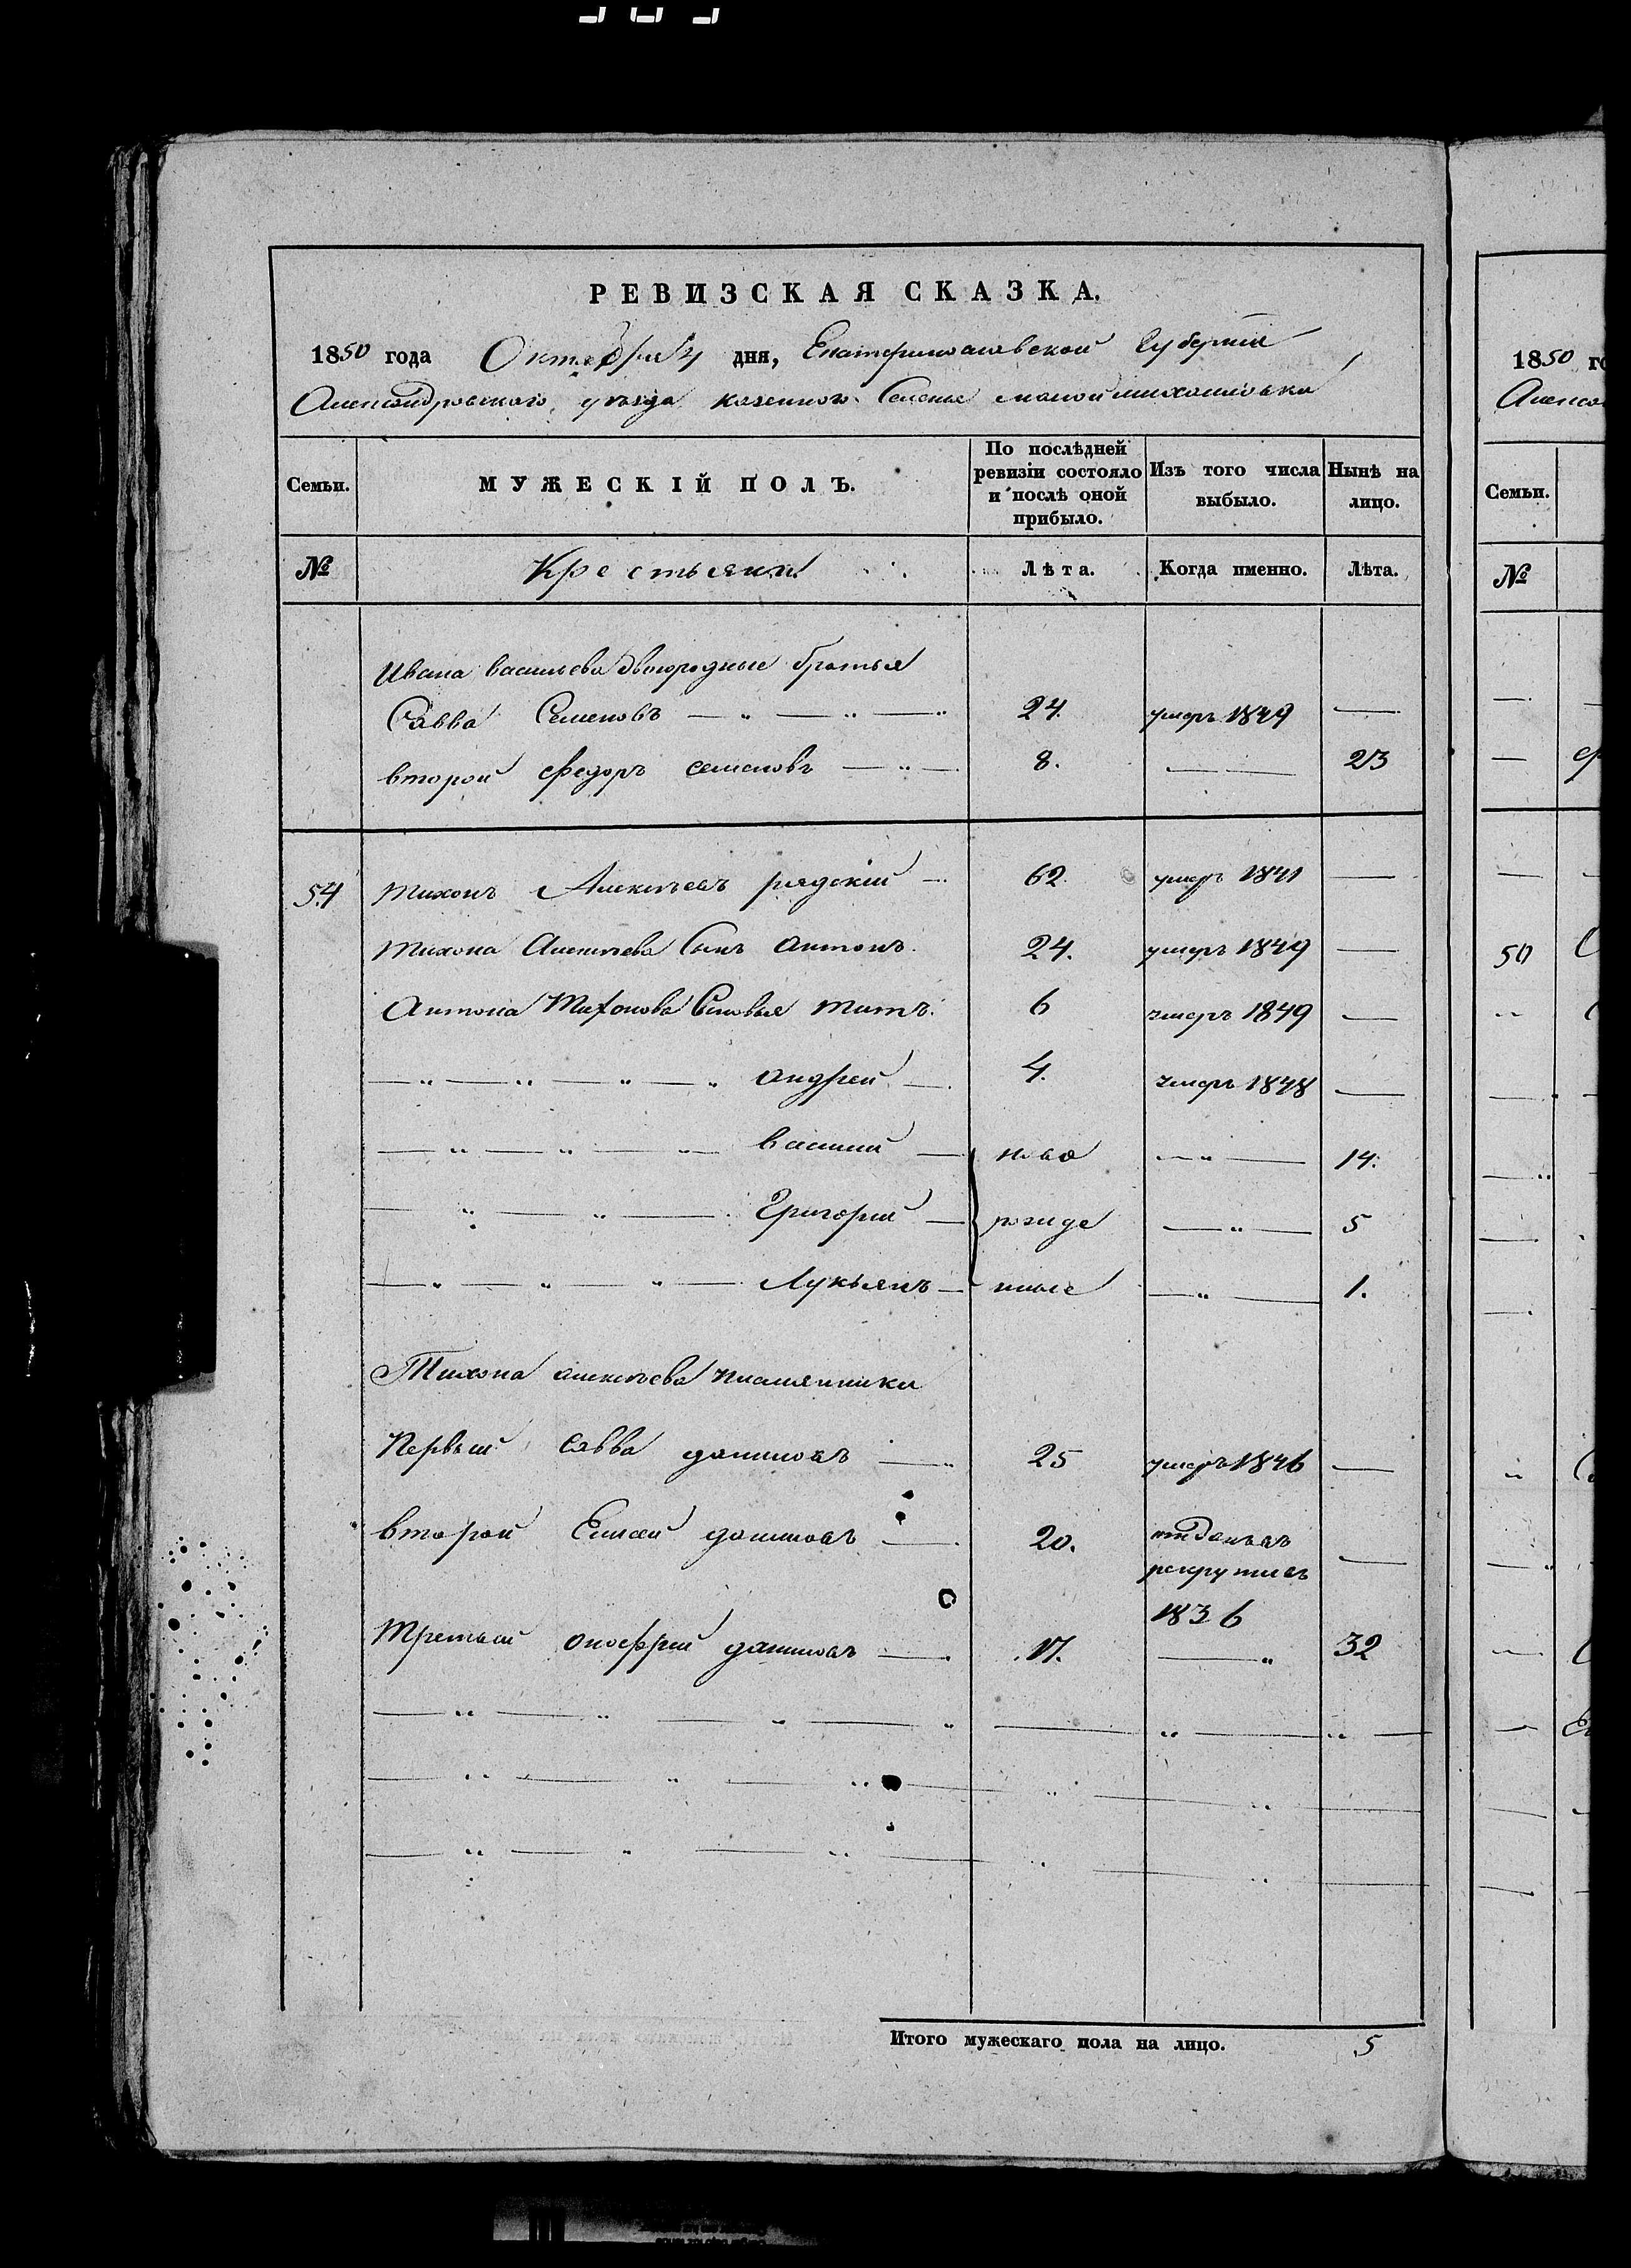 РЕВИЗСКАЯ СКАЗКА.
1850 года Октября 4 дня, Екатеринославской Губернии
Александровского уезда казенного Селения малой михайловки
Семьи. МУЖЕСКІЙ ПОЛЪ. По послѣдней ревизіи состояло и послѣ оной прибыло. Изъ того числа выбыло. Нынѣ на лицо.
№ Крестьяни Лѣта. Когда именно. Лѣта.
Ивана васильева двоюродные братья
Савва Семеновъ 24. умеръ 1849
второй федоръ семеновъ 8. 23
54 тихонъ Алексѣевъ рядскій 62. умеръ 1841
тихона Алексѣева Сынъ антонъ. 24. умеръ 1849
Антона Тихонова Сыновья титъ. 6 умеръ 1849
андрей 4. умеръ 1848
василий ново 14.
Григорий рожде 5
Лукьянъ нные 1.
Тихона алексѣева племянники
Первый савва даниловъ 25 умеръ 1846
второй Елисей даниловъ 20. отданъ въ
рекруты въ
1836
Третий онофрий даниловъ 17. 32
Итого мужескаго пола на лицо. 5
1850 го
Алекса
Семьи.
№
50